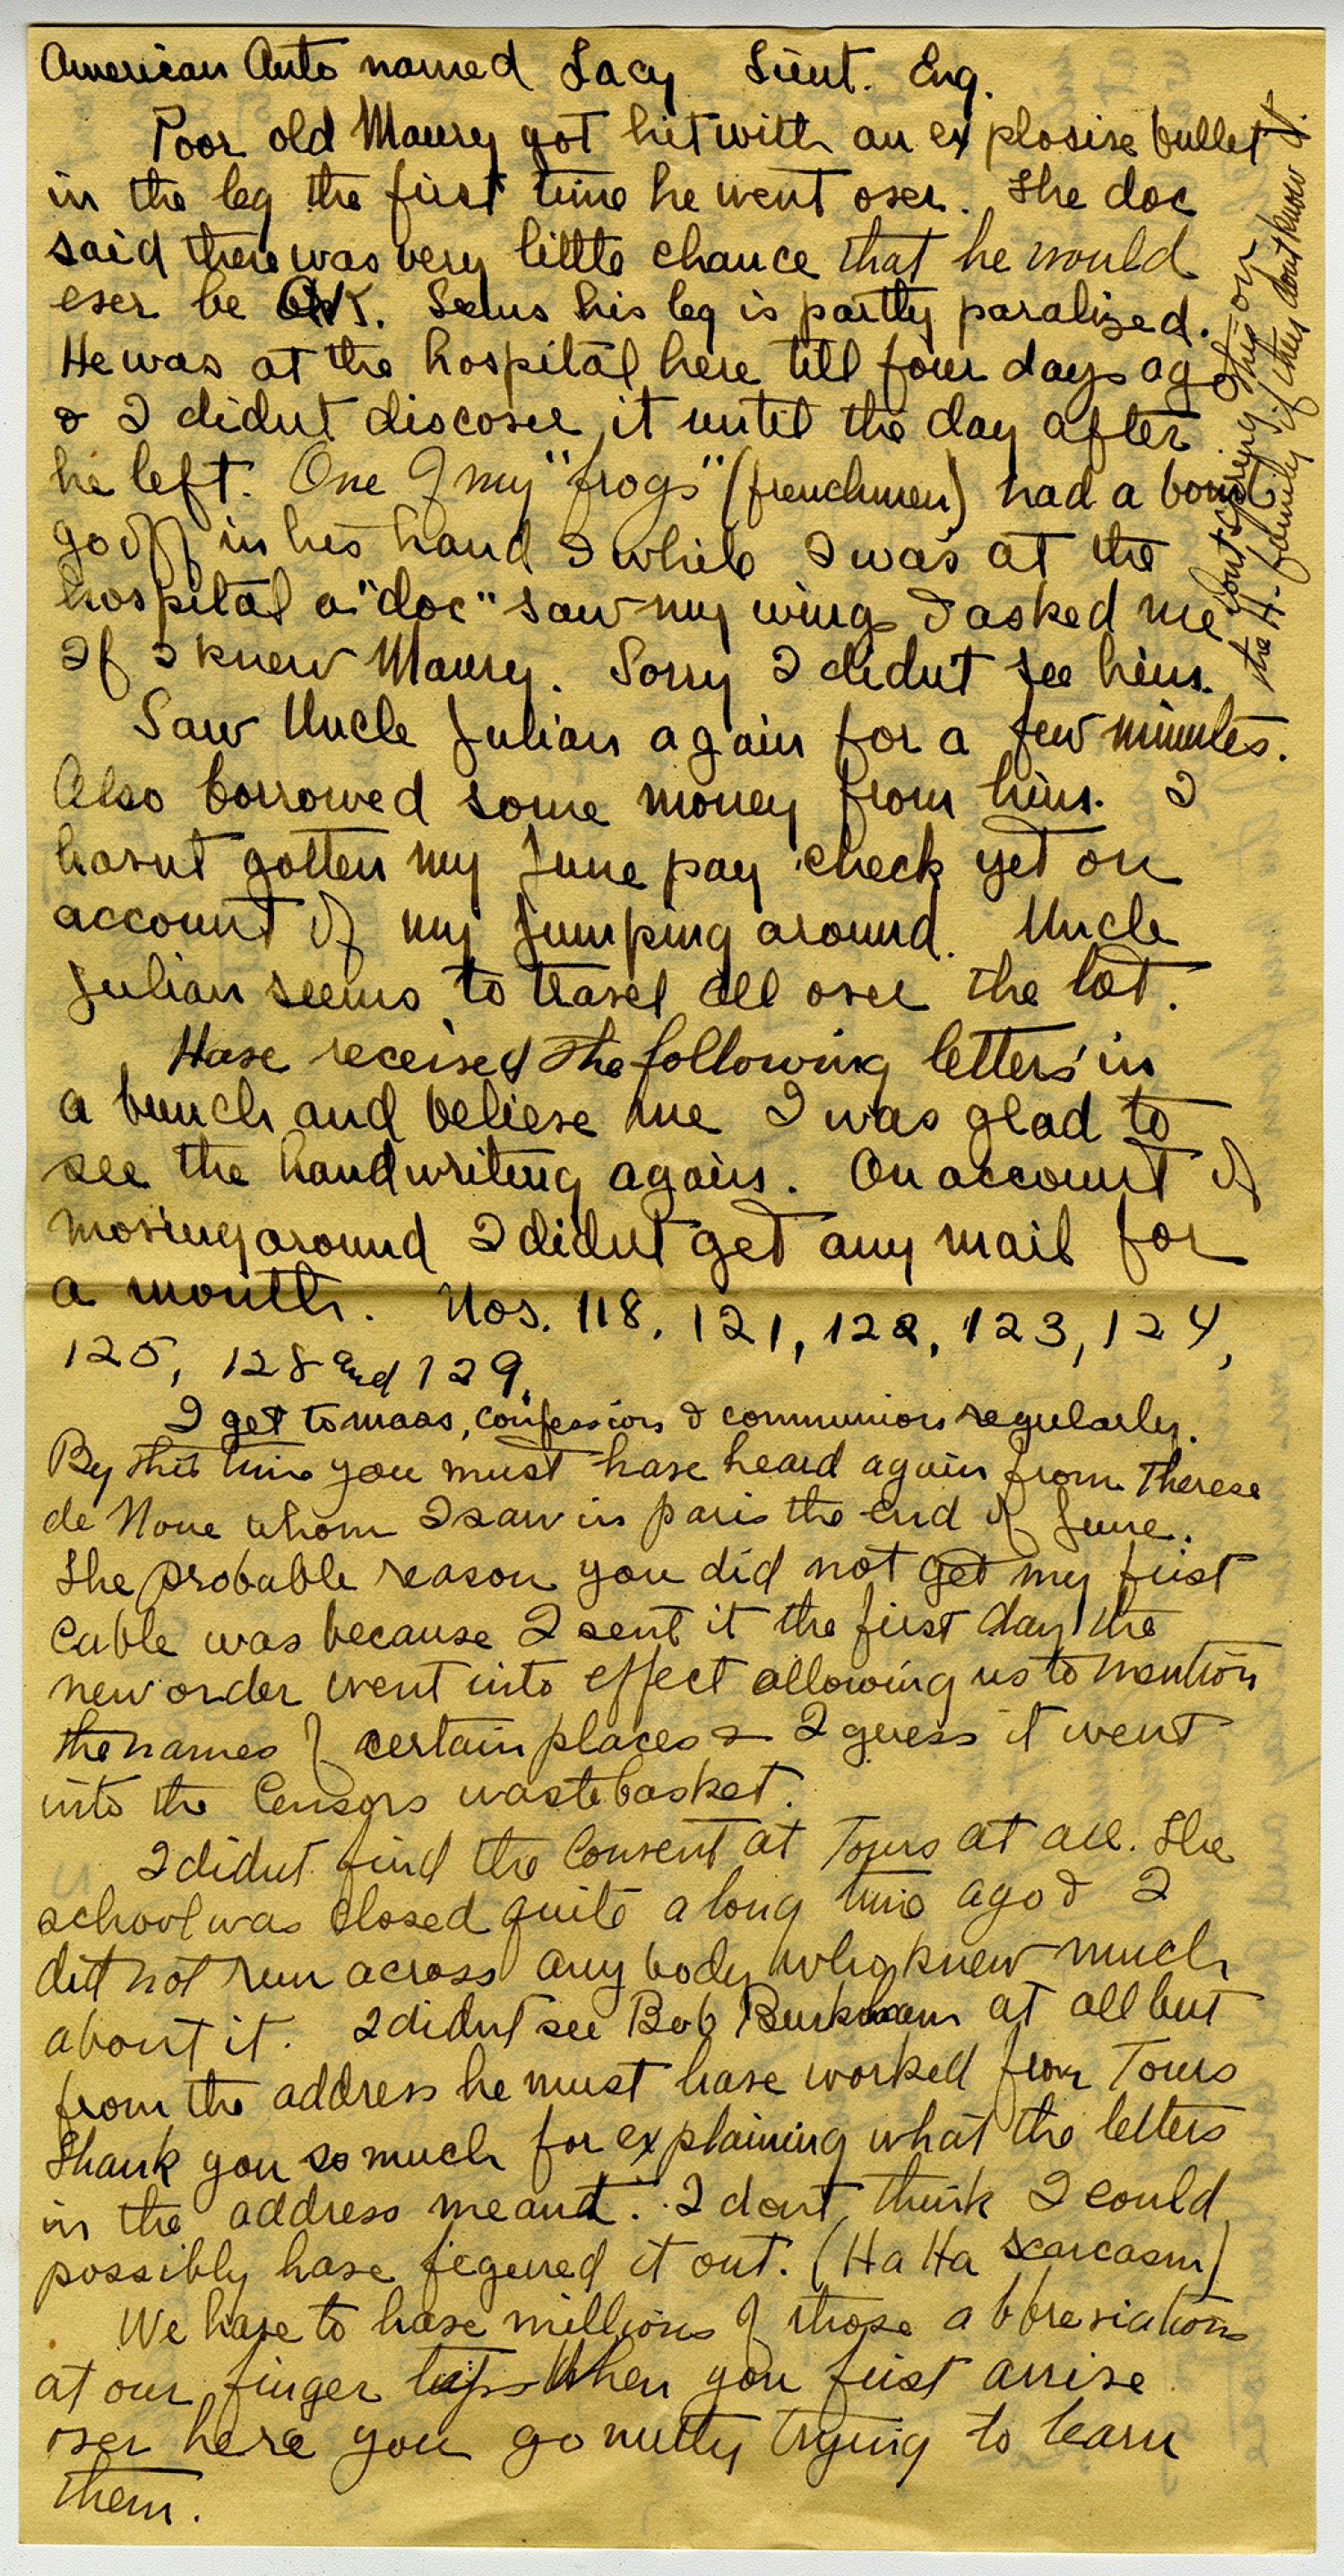 American Auto named Lacy Lieut. Eng.
Poor old Maury got hit with an explosive bullet
in the leg the first time he went over. The doc
said there was very little chance that he would
ever be OK. Seems his leg is partly paralized.
He was at the hospital here till four days ago
& I didnt discover it until the day after
he left. One of my "frogs" (frenchmen) had a bomb
go off in his hand & while I was at the
hospital a "doc" saw my wings & asked me
If I knew Maury. Sorry I didnt see him.
Saw Uncle Julian again for a few minutes.
Also borrowed some money from him. I
havnt gotten my June pay check yet on
account of my jumping around. Uncle
Julian seems to travel all over the lot.
Have received the following letters in
a bunch and believe me I was glad to
see the handwriting again. On account of
moving around I didnt get any mail for
a month. Nos. 118, 121, 122, 123, 124,
125, 128 and 129.
I get to mass, confession & communion regularly.
By this time you must have heard again from Therese
de Noue whom I saw in paris the end of June.
The probable reason you did not get my first
cable was because I sent it the first day the
new order went into effect allowing us to mention
the names of certain places & I guess it went
into the Censors wastebasket.
I didnt find the Convent at Tours at all. The
school was closed quite a long time ago & I
did not run across any body who knew much
about it. I didnt see Bob at all but
from the address he must have worked from Tours
Thank you so much for explaining what the letters
in the address meant. I dont think I could
possibly have figured it out. (Ha Ha scarcasm)
We have to have millions of those abbreviations
at our finger tips When you first arrive
over here you go nutty trying to learn
them.
Dont spring this on
the H. family if they dont know it.